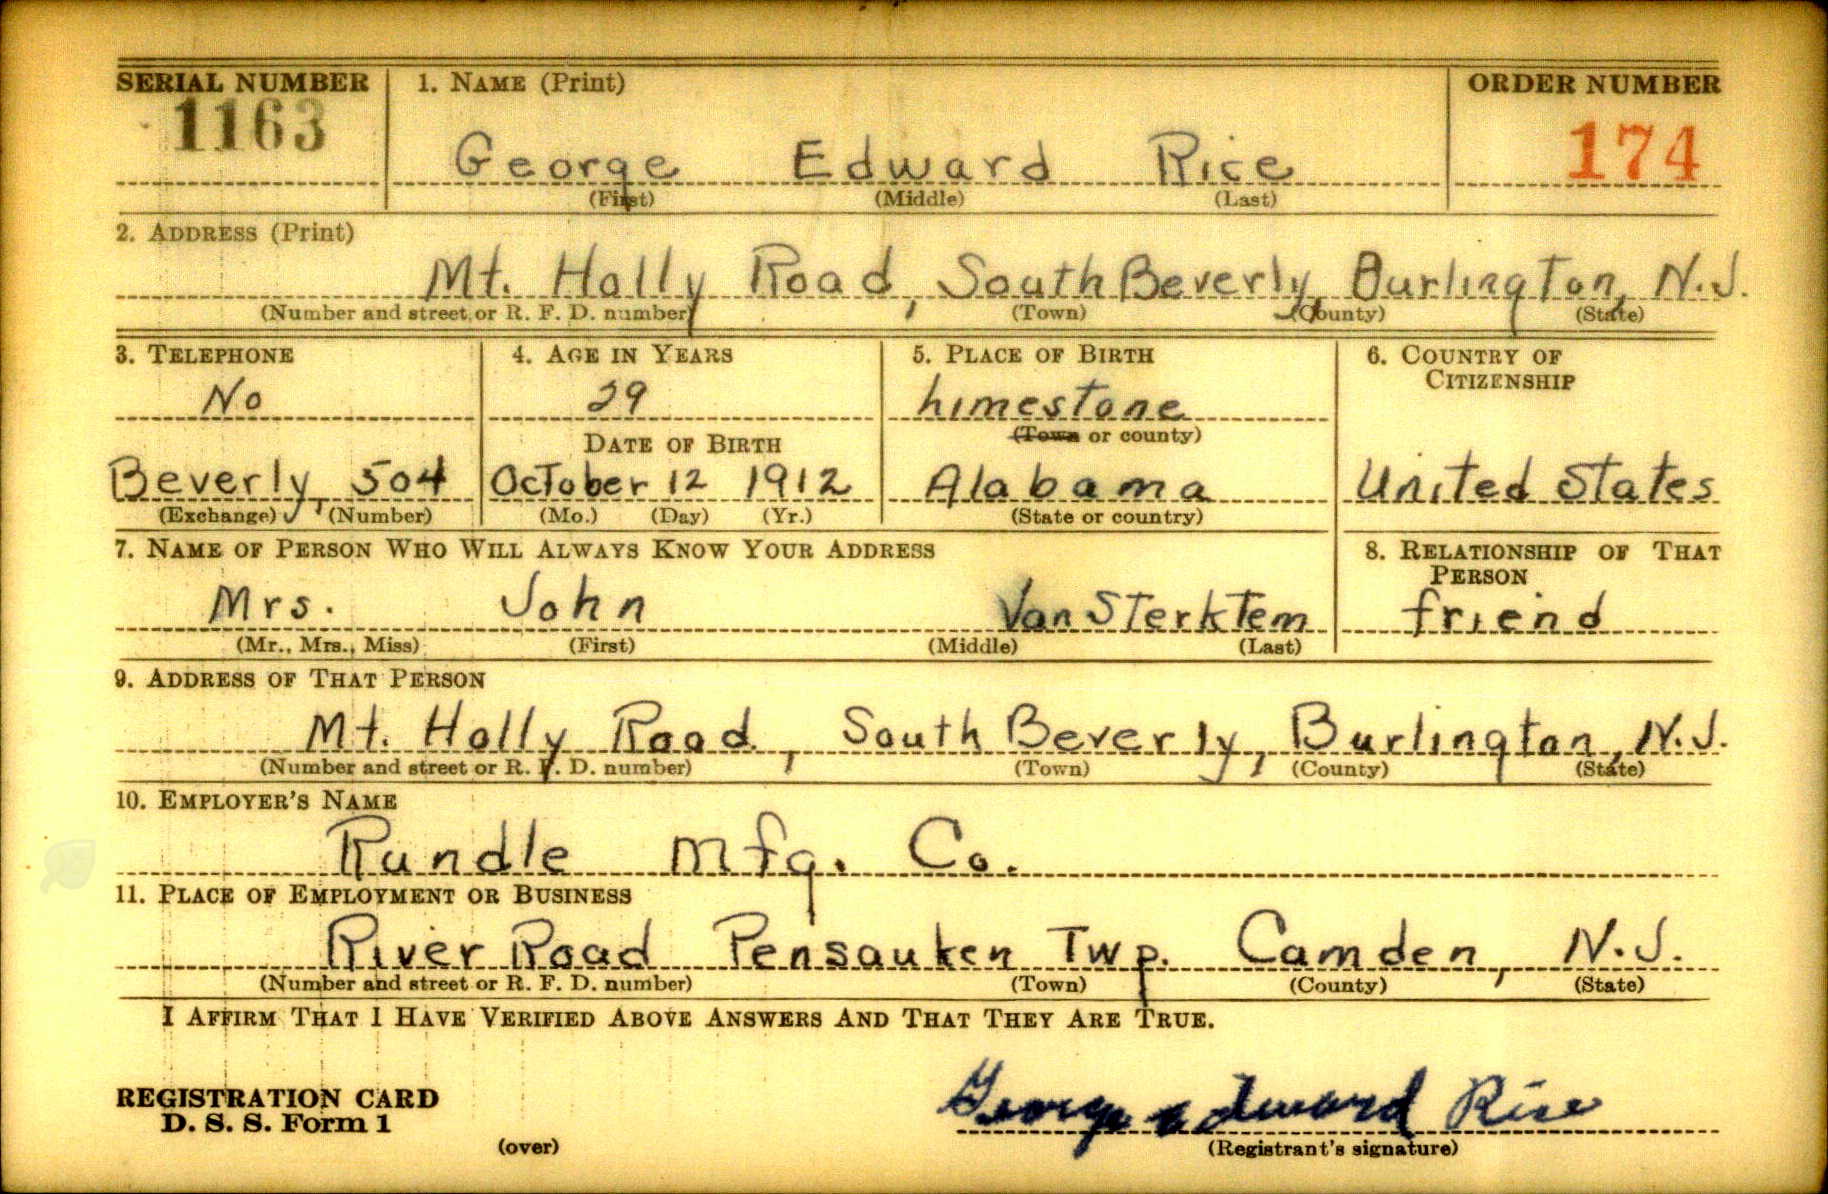 SERIAL NUMBER 1. NAME (Print) ORDER NUMBER
1163 George Edward Rice 174
(First) (Middle) (Last)
2. ADDRESS (Print)
Mt. Holly Road, South Beverly, Burlington, N.J.
(Number and street or R. F. D. number) (Town) (County) (State)
3. TELEPHONE 4. AGE IN YEARS 5. PLACE OF BIRTH 6. COUNTRY OF
CITIZENSHIP
No 29 Limestone
DATE OF BIRTH (Town or county)
Beverly, 504 October 12 1912 Alabama United States
(Exchange) (Number) (Mo.) (Day) (Yr.) (State or country)
7. NAME OF PERSON WHO WILL ALWAYS KNOW YOUR ADDRESS 8. RELATIONSHIP OF THAT
PERSON
Mrs. John Van Sterktem friend
(Mr., Mrs., Miss) (First) (Middle) (Last)
9. ADDRESS OF THAT PERSON
Mt. Holly Road, South Beverly, Burlington, N.J.
(Number and street or R. F. D. number) (Town) (County) (State)
10. EMPLOYER'S NAME
Rundle Mfg. Co.
11. PLACE OF EMPLOYMENT OR BUSINESS
River Road Pensauken Twp. Camden, N.J.
(Number and street or R. F. D. number) (Town) (County) (State)
I AFFIRM THAT I HAVE VERIFIED ABOVE ANSWERS AND THAT THEY ARE TRUE.
REGISTRATION CARD
D. S. S. Form 1 George Edward Rice
(over) (Registrant's signature)